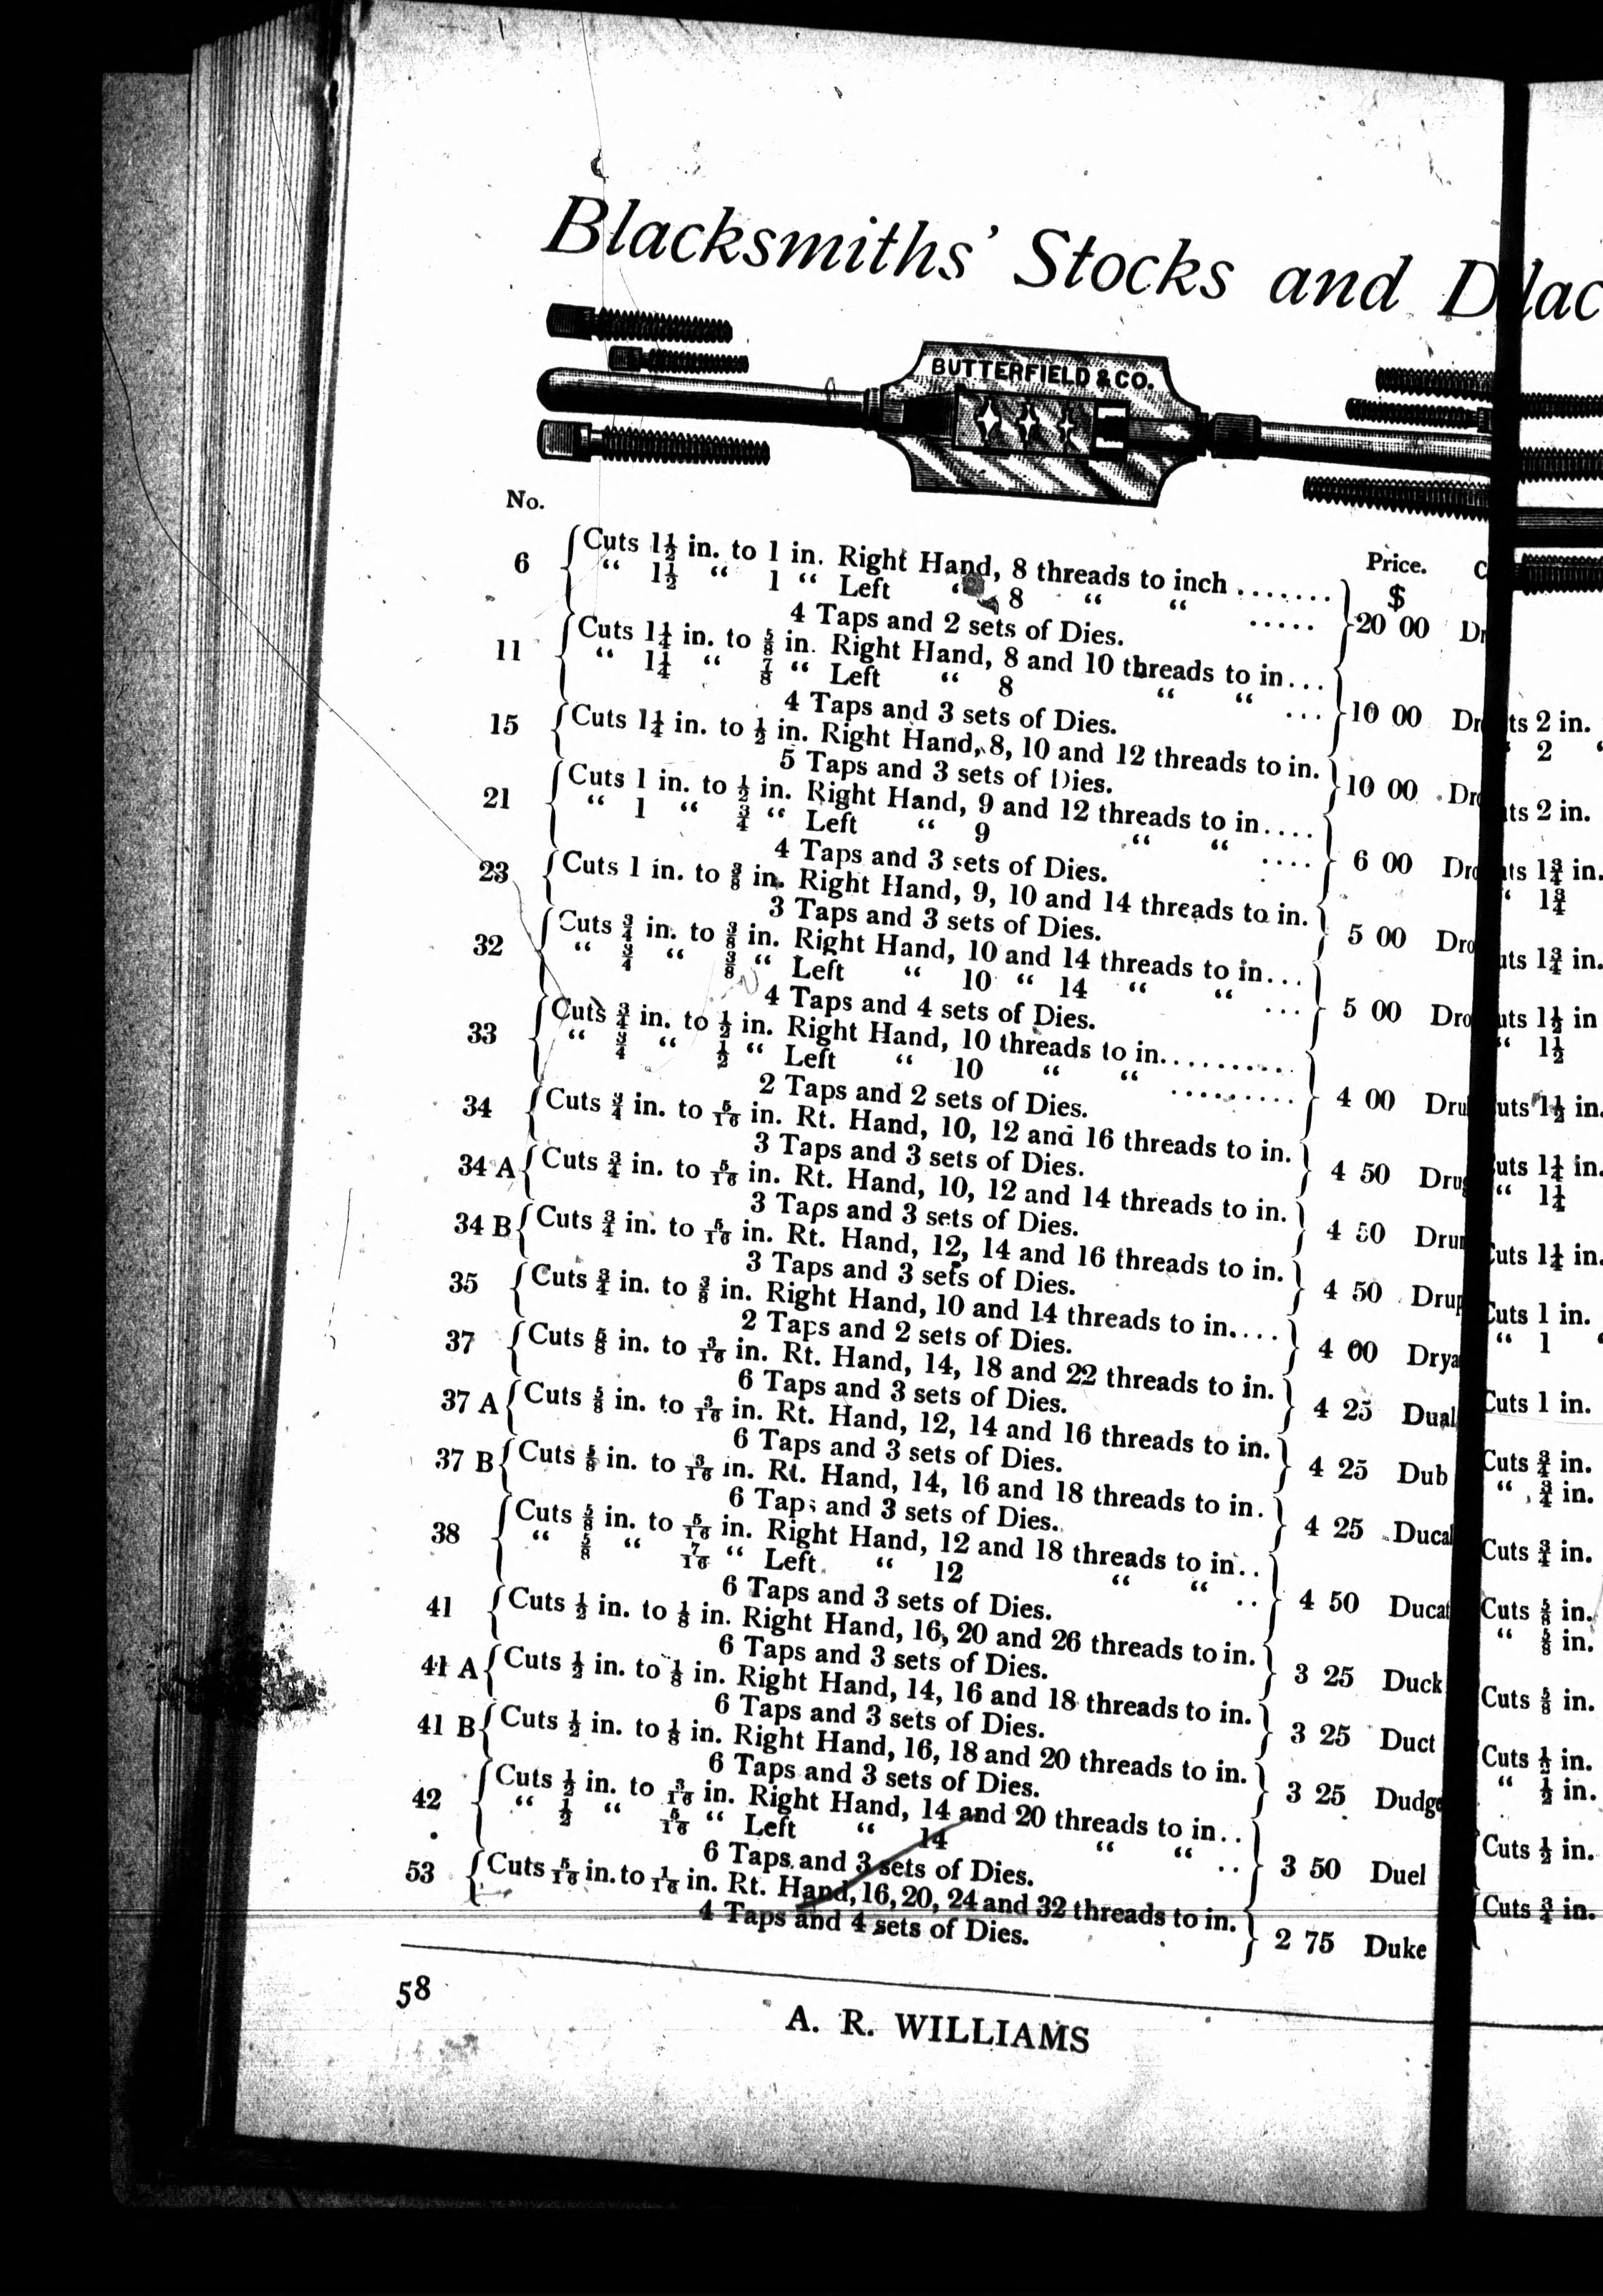 Blacksmiths' Stocks and D
BUTTERFIELD & CO.
No.
Price.
$
6 Cuts 1½ in. to 1 in. Right Hand, 8 threads to inch .......
“ 1½ “ 1 “ Left “ 8 “ “ ..... 20 00
4 Taps and 2 sets of Dies.
11 Cuts 1¼ in. to ⅝ in. Right Hand, 8 and 10 threads to in...
“ 1¼ “ ⅞ “ Left “ 8 “ “ ... 10 00
4 Taps and 3 sets of Dies.
15 Cuts 1¼ in. to ½ in. Right Hand, 8, 10 and 12 threads to in. 10 00
5 Taps and 3 sets of Dies.
21 Cuts 1 in. to ½ in. Right Hand, 9 and 12 threads to in....
“ 1 “ ¾ “ Left “ 9 “ “ .... 6 00
4 Taps and 3 sets of Dies.
23 Cuts 1 in. to ⅜ in. Right Hand, 9, 10 and 14 threads to in. 5 00 Dro
3 Taps and 3 sets of Dies.
32 Cuts ¾ in. to ⅜ in. Right Hand, 10 and 14 threads to in...
“ ¾ “ ⅜ “ Left “ 10 “ 14 “ “ ... 5 00 Dro
4 Taps and 4 sets of Dies.
33 Cuts ¾ in. to ½ in. Right Hand, 10 threads to in..........
“ ¾ “ ½ “ Left “ 10 “ “ .......... 4 00 Dru
2 Taps and 2 sets of Dies.
34 Cuts ¾ in. to 5/16 in. Rt. Hand, 10, 12 and 16 threads to in. 4 50 Drug
3 Taps and 3 sets of Dies.
34 A Cuts ¾ in. to 5/16 in. Rt. Hand, 10, 12 and 14 threads to in. 4 50 Drum
3 Taps and 3 sets of Dies.
34 B Cuts ¾ in. to 5/16 in. Rt. Hand, 12, 14 and 16 threads to in. 4 50 Drup
3 Taps and 3 sets of Dies.
35 Cuts ¾ in. to ⅜ in. Right Hand, 10 and 14 threads to in.... 4 00 Drya
2 Taps and 2 sets of Dies.
37 Cuts ⅝ in. to 3/16 in. Rt. Hand, 14, 18 and 22 threads to in. 4 25 Dual
6 Taps and 3 sets of Dies.
37 A Cuts ⅝ in. to 3/16 in. Rt. Hand, 12, 14 and 16 threads to in. 4 25 Dub
6 Taps and 3 sets of Dies.
37 B Cuts ⅝ in. to 3/16 in. Rt. Hand, 14, 16 and 18 threads to in. 4 25 Ducal
6 Taps and 3 sets of Dies.
38 Cuts ⅝ in. to 5/16 in. Right Hand, 12 and 18 threads to in..
“ ⅝ “ 7/16 “ Left “ 12 “ “ .. 4 50 Ducat
6 Taps and 3 sets of Dies.
41 Cuts ½ in. to ⅛ in. Right Hand, 16, 20 and 26 threads to in. 3 25 Duck
6 Taps and 3 sets of Dies.
41 A Cuts ½ in. to ⅛ in. Right Hand, 14, 16 and 18 threads to in. 3 25 Duct
6 Taps and 3 sets of Dies.
41 B Cuts ½ in. to ⅛ in. Right Hand, 16, 18 and 20 threads to in. 3 25 Dudge
6 Taps and 3 sets of Dies.
42 Cuts ½ in. to 3/16 in. Right Hand, 14 and 20 threads to in..
“ ½ “ 5/16 “ Left “ 14 “ “ .. 3 50 Duel
6 Taps and 3 sets of Dies.
53 Cuts 5/16 in. to 1/16 in. Rt. Hand, 16, 20, 24 and 32 threads to in. 2 75 Duke
4 Taps and 4 sets of Dies.
58
A. R. WILLIAMS
lac
ts 2 in.
2
ts 2 in.
ts 1¾ in.
1¾
uts 1¾ in.
uts 1½ in
“ 1½
uts 1½ in.
uts 1¼ in.
“ 1¼
Cuts 1¼ in.
Cuts 1 in.
“ 1
Cuts 1 in.
Cuts ¾ in.
“ ¾ in.
Cuts ¾ in.
Cuts ⅝ in.
“ ⅝ in.
Cuts ⅝ in.
Cuts ½ in.
“ ½ in.
Cuts ½ in.
Cuts ¾ in.